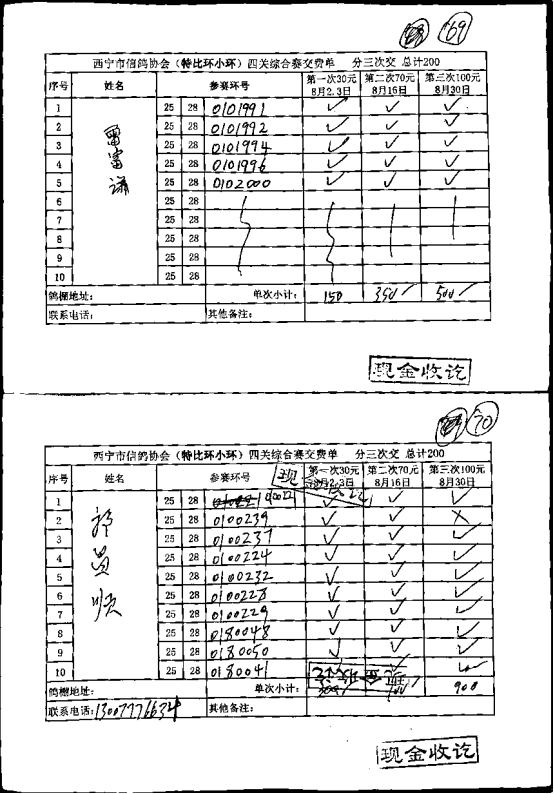 69
西宁市信鸽协会（特比环小环）四关综合赛交费单 分三次交 总计200
序号 姓名 参赛环号 第一次30元 8月2.3日 第二次70元 8月16日 第三次100元 8月30日
1 25 28 0101991 ✓ ✓ ✓
2 25 28 0101992 ✓ ✓ ✓
3 25 28 0101994 ✓ ✓ ✓
4 25 28 0101996 ✓ ✓ ✓
5 25 28 0102000 ✓ ✓ ✓
6 25 28
7 25 28
8 25 28
9 25 28
10 25 28
鸽棚地址： 单次小计： 150 350 ✓ 500 ✓
联系电话： 其他备注：
现金收讫
70
西宁市信鸽协会（特比环小环）四关综合赛交费单 分三次交 总计200
序号 姓名 参赛环号 第一次30元 8月2.3日 第二次70元 8月16日 第三次100元 8月30日
1 25 28 ✓ ✓ ✓
2 25 28 0100239 ✓ ✓ ✗
3 25 28 0100237 ✓ ✓ ✓
4 25 28 0100224 ✓ ✓ ✓
5 25 28 0100232 ✓ ✓ ✓
6 25 28 0100228 ✓ ✓ ✓
7 25 28 0100229 ✓ ✓ ✓
8 25 28 0180048 ✓ ✓ ✓
9 25 28 0180050 ✓ ✓ ✓
10 25 28 0180041 ✓
鸽棚地址： 单次小计： 900
联系电话：13007776634 其他备注：
现金收讫